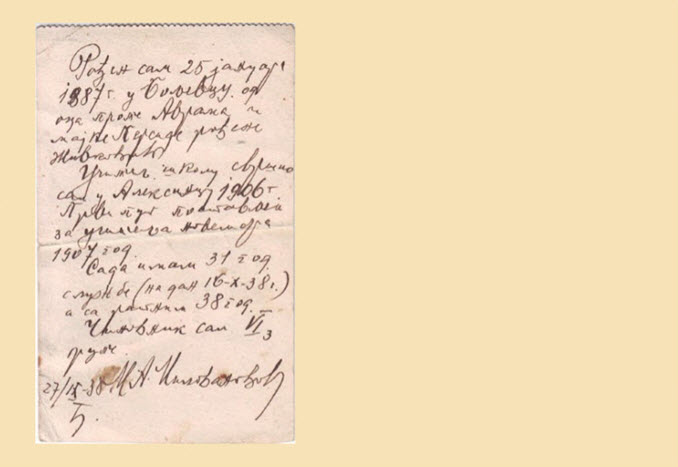 Рођен сам 25 јануара
1887 г. у Бољевцу. од
оца проте Аврама и
мајке Персиде рођене
Живковић
Учитељ. школу свршио
сам у Алексинцу 1906 г
Први пут постављен
за учитеља новембра
1907 год.
Сада имам 31 год.
службе (на дан 16-X-38 г.)
а са ратним 38 год.
Чиновник сам VI 3
групе.
27/IX-38 М. А. Миловановић
Б.